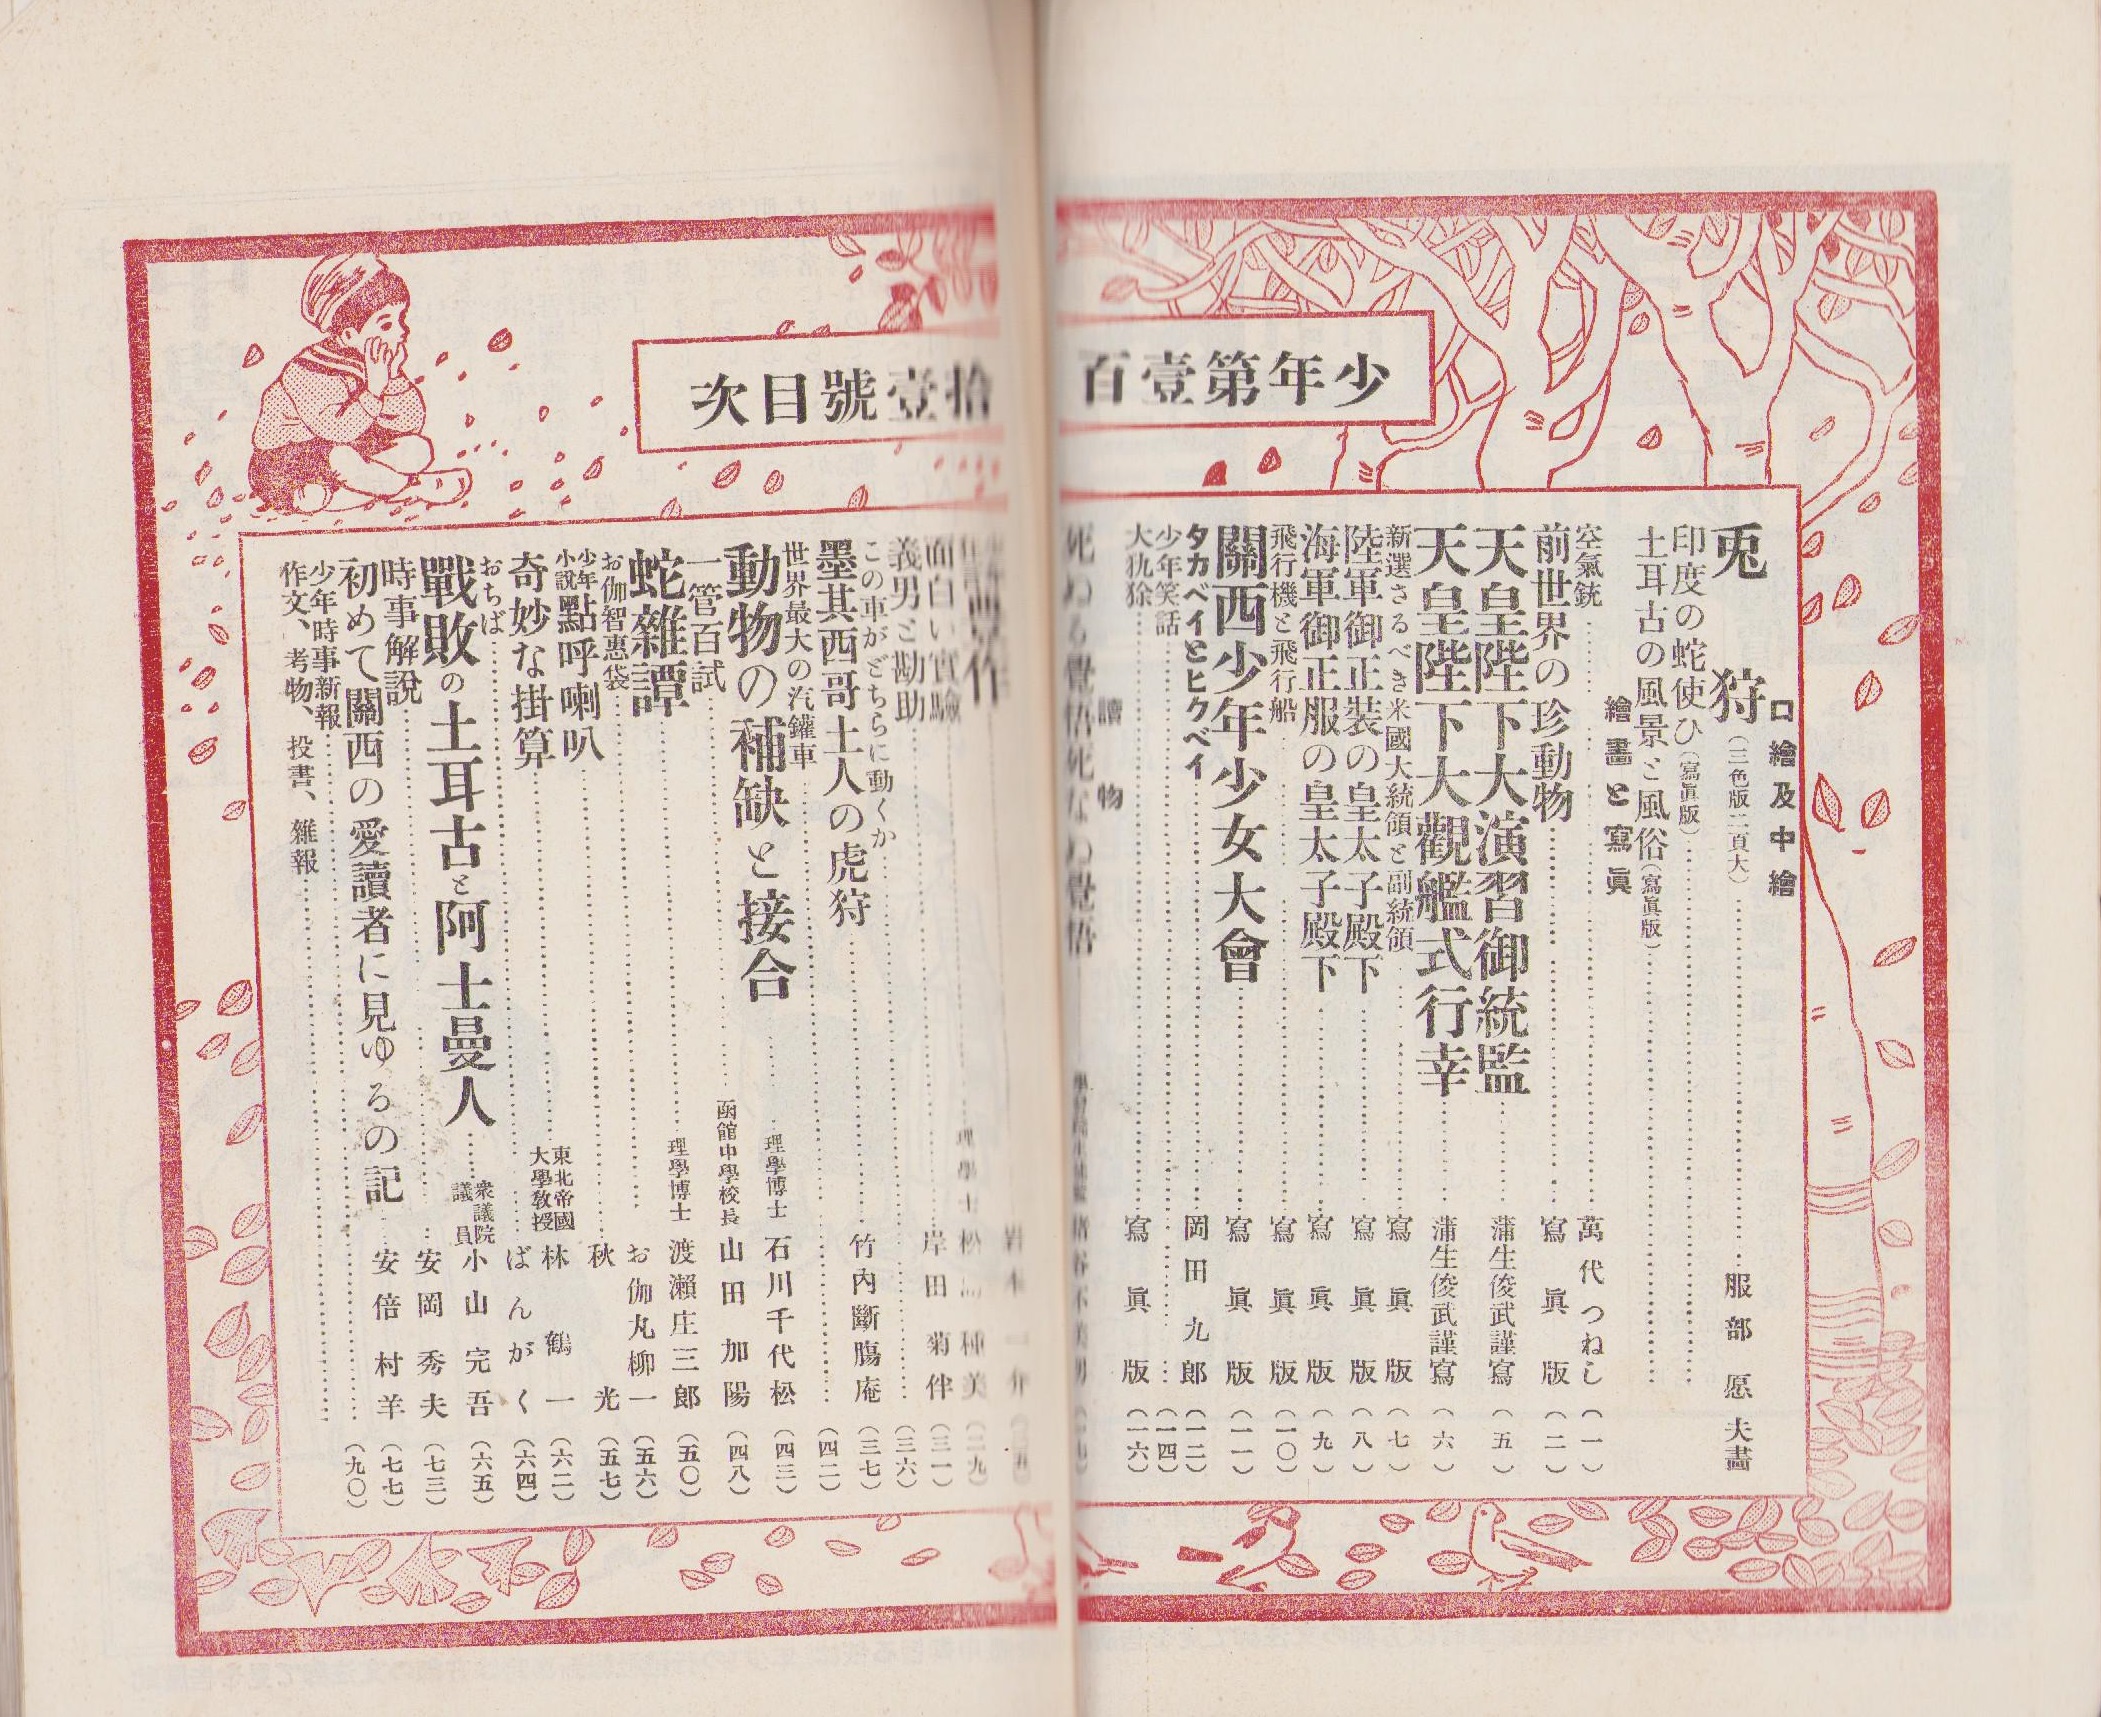 少年第壹百拾壹號目次
口繪及中繪
兎狩（三色版二頁大）服部愿夫畵
印度の蛇使ひ（寫眞版）
土耳古の風景と風俗（寫眞版）
繪畵と寫眞
空氣銃 萬代つねし（一）
前世界の珍動物 寫眞版（二）
天皇陛下大演習御統監 蒲生俊武謹寫（五）
天皇陛下大觀艦式行幸 蒲生俊武謹寫（六）
新選さるべき米國大統領と副統領 寫眞版（七）
陸軍御正裝の皇太子殿下 寫眞版（八）
海軍御正服の皇太子殿下 寫眞版（九）
飛行機と飛行船 寫眞版（一〇）
關西少年少女大會 寫眞版（一一）
タカベイとヒクベイ 岡田九郎（一二）
少年笑話（一四）
大犰狳 寫眞版（一六）
讀物
死ぬる覺悟死なぬ覺悟
作
面白い實驗 理學士松島種美（二九）
義男と勘助 岸田菊伴（三一）
この車がどちらに動くか（三六）
墨其西哥土人の虎狩 竹內斷膓庵（三七）
世界最大の汽鑵車（四二）
動物の補缺と接合 理學博士石川千代松（四三）
一管百試 函館中學校長山田加陽（四八）
蛇雜譚 理學博士渡瀨庄三郎（五〇）
お伽智惠袋 お伽丸柳一（五六）
少年小說點呼喇叭 秋光（五七）
奇妙な掛算 東北帝國大學敎授林鶴一（六二）
おちば ばんがく（六四）
戰敗の土耳古と阿士曼人 衆議院議員小山完吾（六五）
時事解說 安岡秀夫（七三）
初めて關西の愛讀者に見ゆるの記 安倍村羊（七七）
少年時事新報（九〇）
作文、考物、投書、雜報